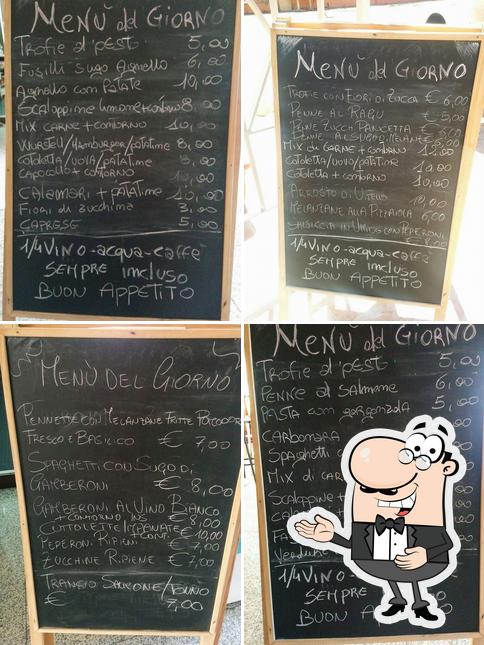 MENÙ del GIORNO
TROFie al pesto 5,00
Fusilli sugo Agnello 6,00
Agnello com patate 10,00
SCALOPPINE limone+contorno 8,00
Mix CARNE + contorno 10,00
WURSTEL/HAMBURGER/PATATINE 8,00
COTOLETTA/UOVA/PATATINE 8,00
CAPOCOLLO + CONTORNO 10,00
CALAMARI + PATATINE 10,00
FIORI di zucchina 3,00
CAPRESE 5,00
1/4 VINO - acqua - caffè
SEMPRE incluso
BUON APPETITO
MENÙ del GIORNO
TROFIE CON FIORI DI ZUCCA € 6,00
PENNE AL RAGU € 5,00
PENNE ZUCCA PANCETTA € 5,00
PENNE AL SUGO MELANZANE € 5,00
Mix di CARNE + contorno 12,00
COTOLETTA/UOVO/PATATINE 10,00
COTOLETTA + contorno 10,00
ARROSTO DI VITELLO 10,00
MELANZANE ALLA PIZZAIOLA 6,00
SALSICCIA IN UMIDO CON PEPERONI
€ 8,00
1/4 VINO - acqua - caffè
SEMPRE incluso
BUON APPETITO
MENÙ DEL GIORNO
PENNETTE CON MELANZANE FRITTE POMODORO
FRESCO E BASILICO € 7,00
SPAGHETTI CON SUGO DI
GAMBERONI € 8,00
GAMBERONI AL VINO BIANCO
+ CONTORNO INS € 8,00
COTOLETTE IMPANATE + CONT. € 10,00
PEPERONI RIPIENI € 7,00
ZUCCHINE RIPIENE € 7,00
TRANCIO SALMONE/TONNO
€ 7,00
MENÙ del GIORNO
TROFie al pesto 5,00
PENNE al SALMONE 6,00
PASTA com gorgonzola 5,00
CARBONARA
SPAGHETTI
Mix di CAR
SCALOPPINE
Verdure
1/4 VINO
SEMPRE
BUON